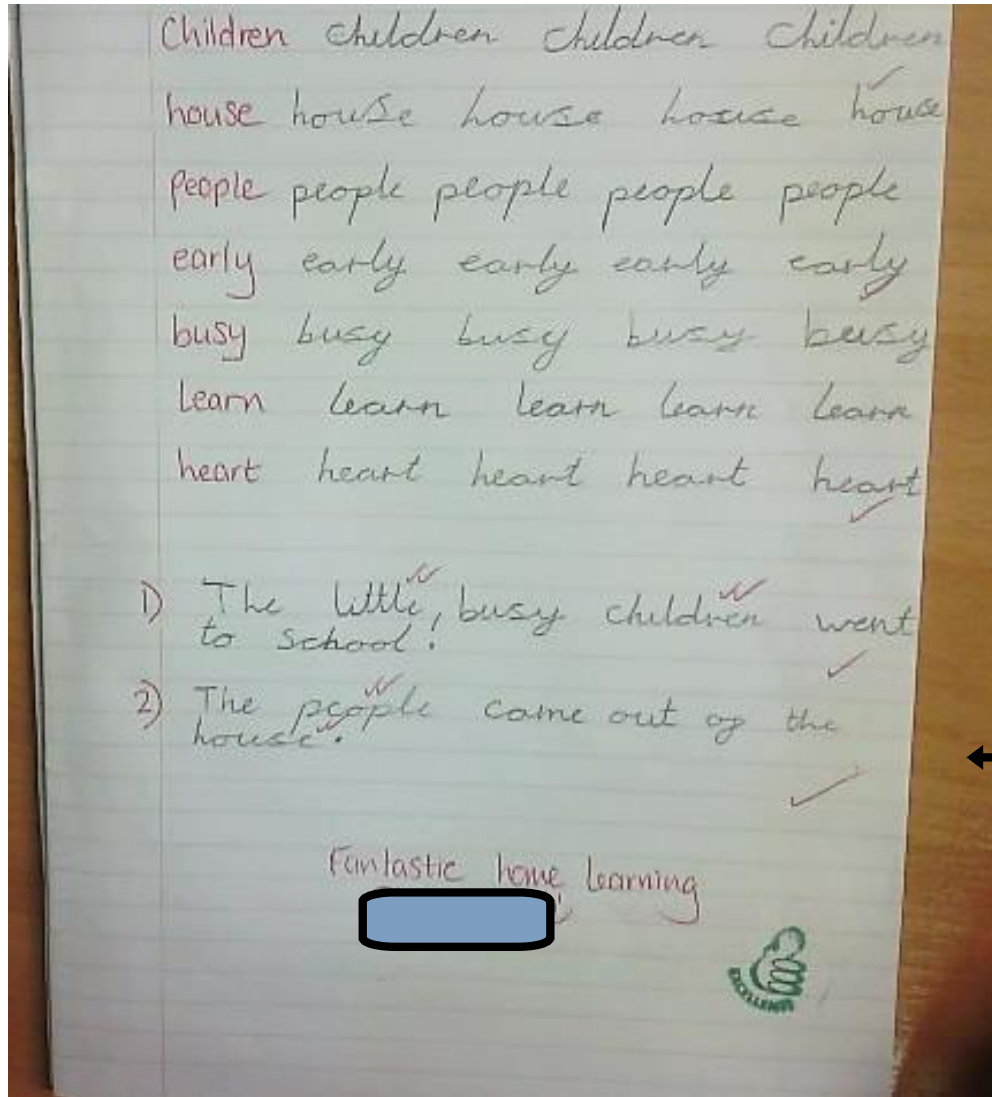 Children children children children
house house house house house
people people people people people
early early early early early
busy busy busy busy busy
learn learn learn learn learn
heart heart heart heart heart
1) The little, busy children went
to school.
2) The people came out of the
house.
Fantastic home learning
EXCELLENT